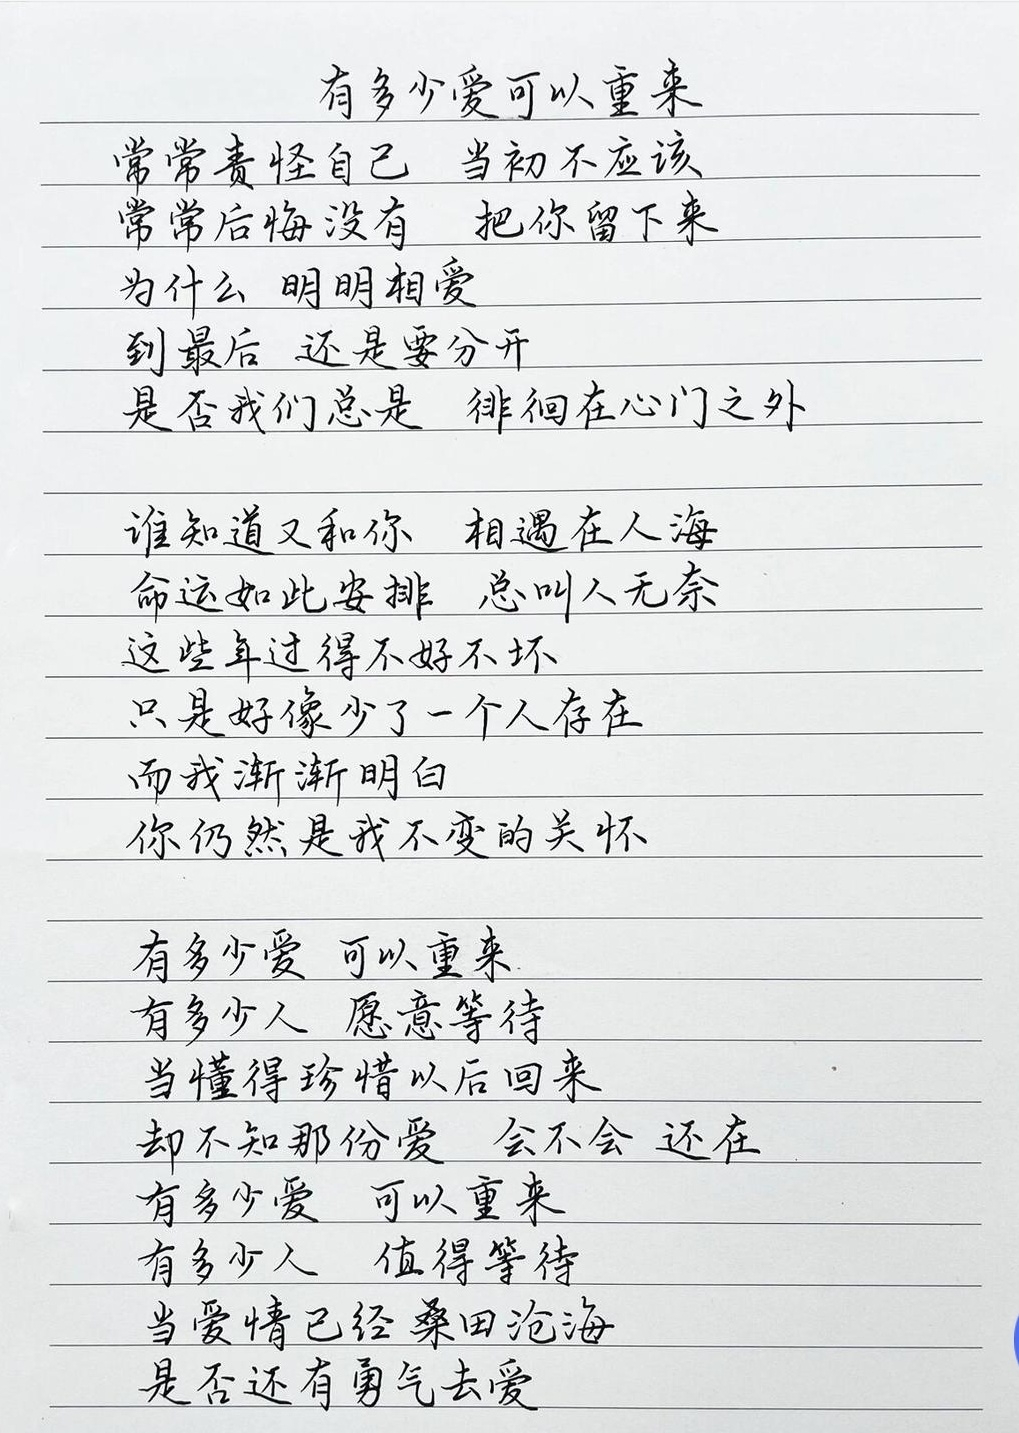 有多少爱可以重来
常常责怪自己 当初不应该
常常后悔没有 把你留下来
为什么 明明相爱
到最后 还是要分开
是否我们总是 徘徊在心门之外
谁知道又和你 相遇在人海
命运如此安排 总叫人无奈
这些年过得不好不坏
只是好像少了一个人存在
而我渐渐明白
你仍然是我不变的关怀
有多少爱 可以重来
有多少人 愿意等待
当懂得珍惜以后回来
却不知那份爱 会不会 还在
有多少爱 可以重来
有多少人 值得等待
当爱情已经桑田沧海
是否还有勇气去爱